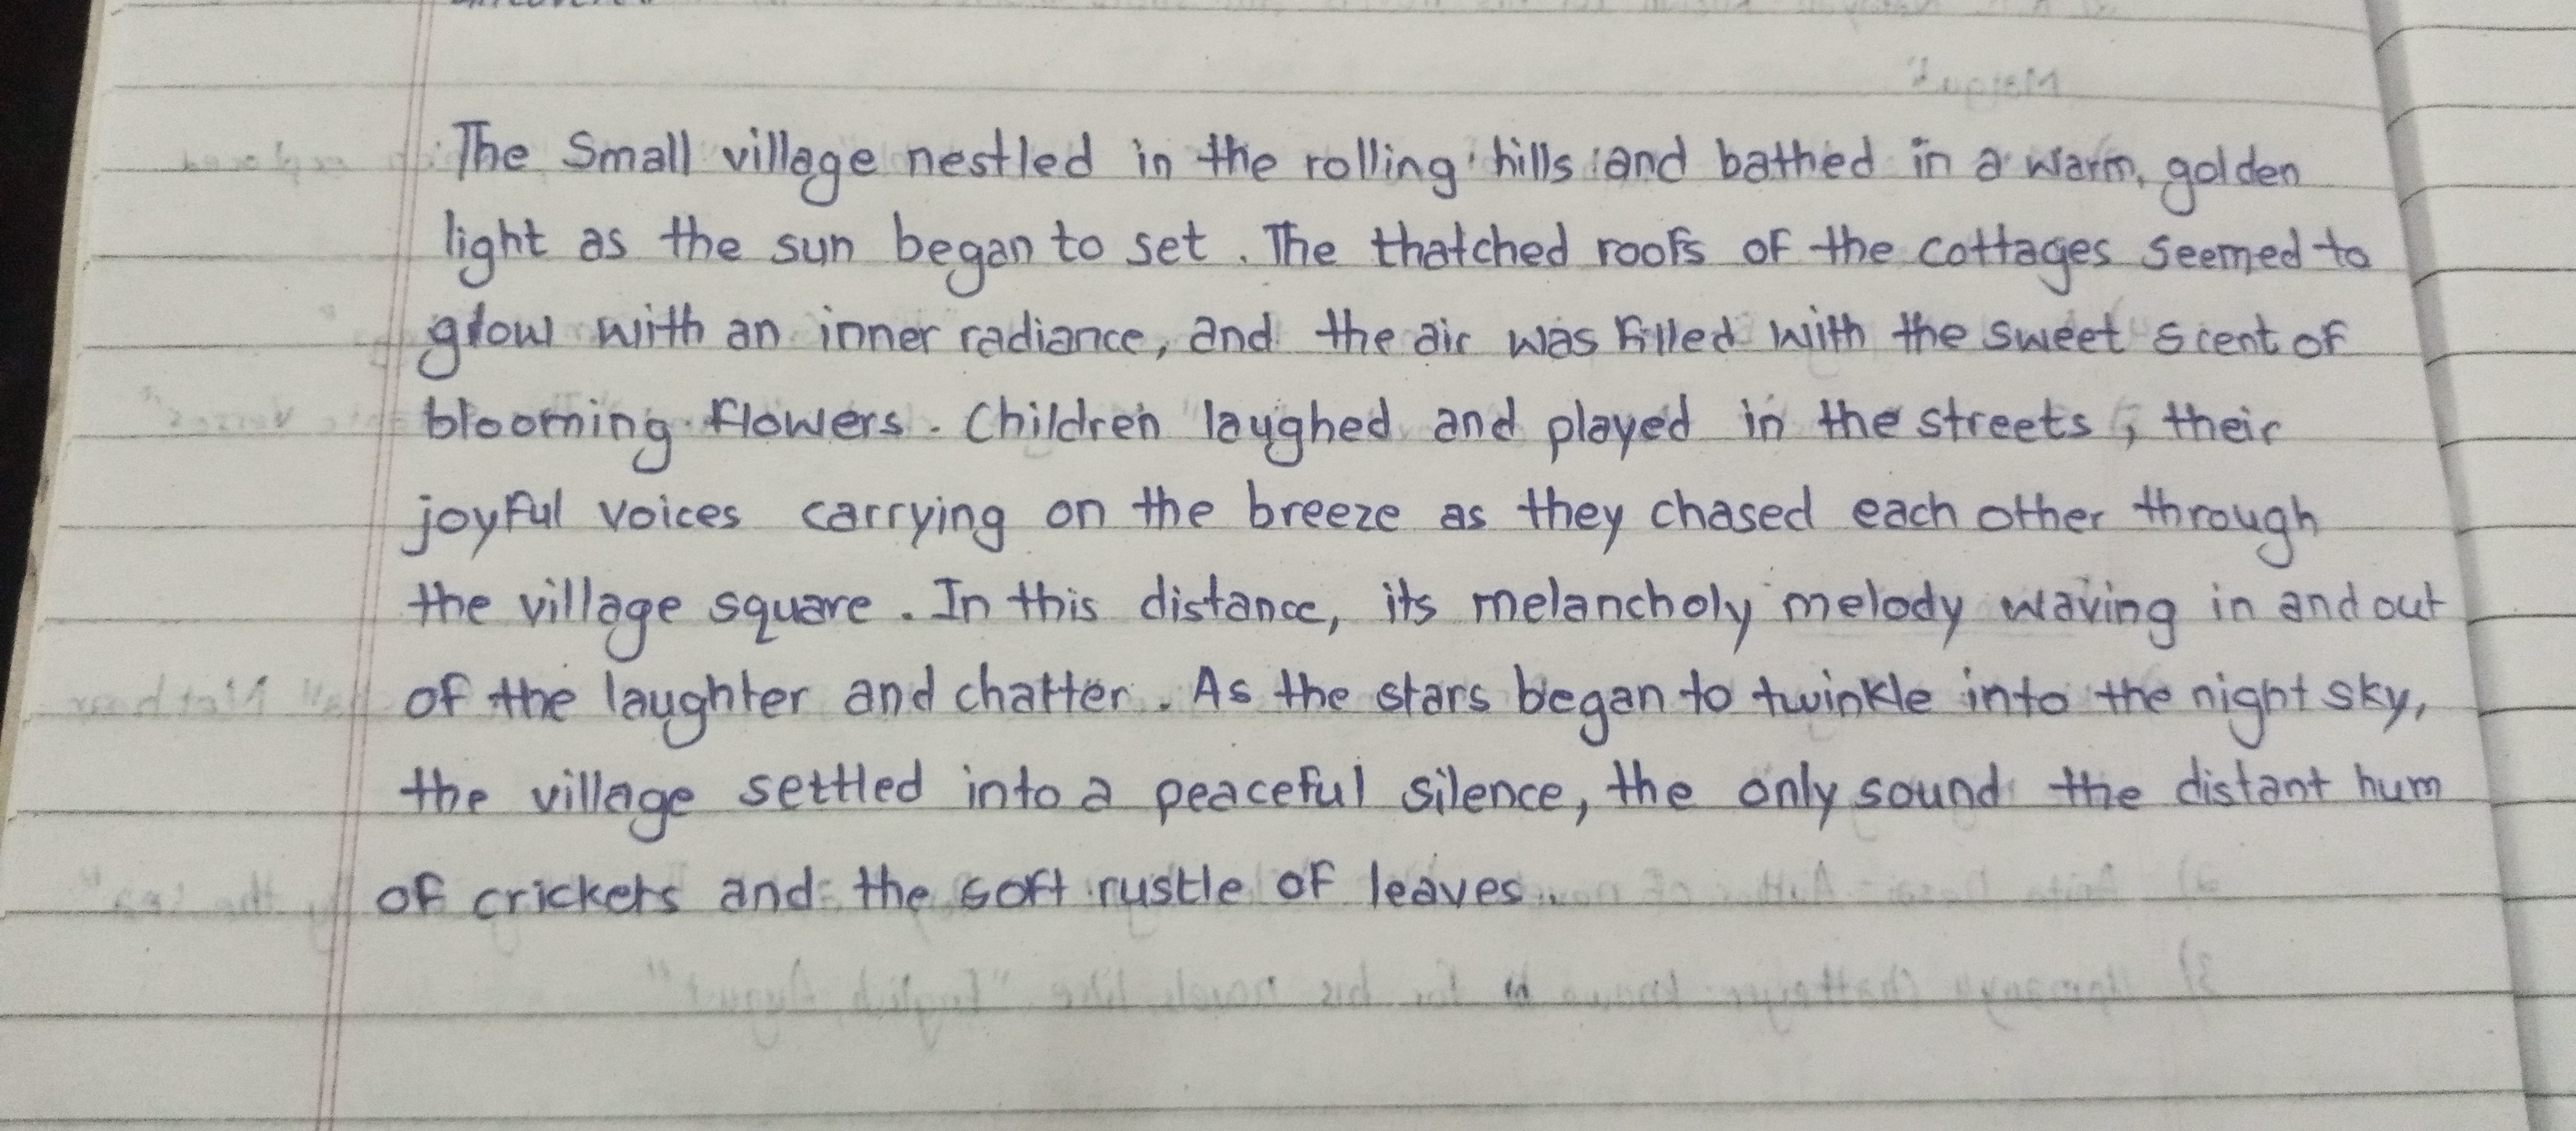 The Small village nestled in the rolling hills and bathed in a warm, golden
light as the sun began to set. The thatched roofs of the cottages seemed to
glow with an inner radiance, and the air was filled with the sweet scent of
blooming flowers. Children laughed and played in the streets, their
joyful voices carrying on the breeze as they chased each other through
the village square. In this distance, its melancholy melody waving in and out
of the laughter and chatter. As the stars began to twinkle into the night sky,
the village settled into a peaceful silence, the only sound the distant hum
of crickets and the soft rustle of leaves.